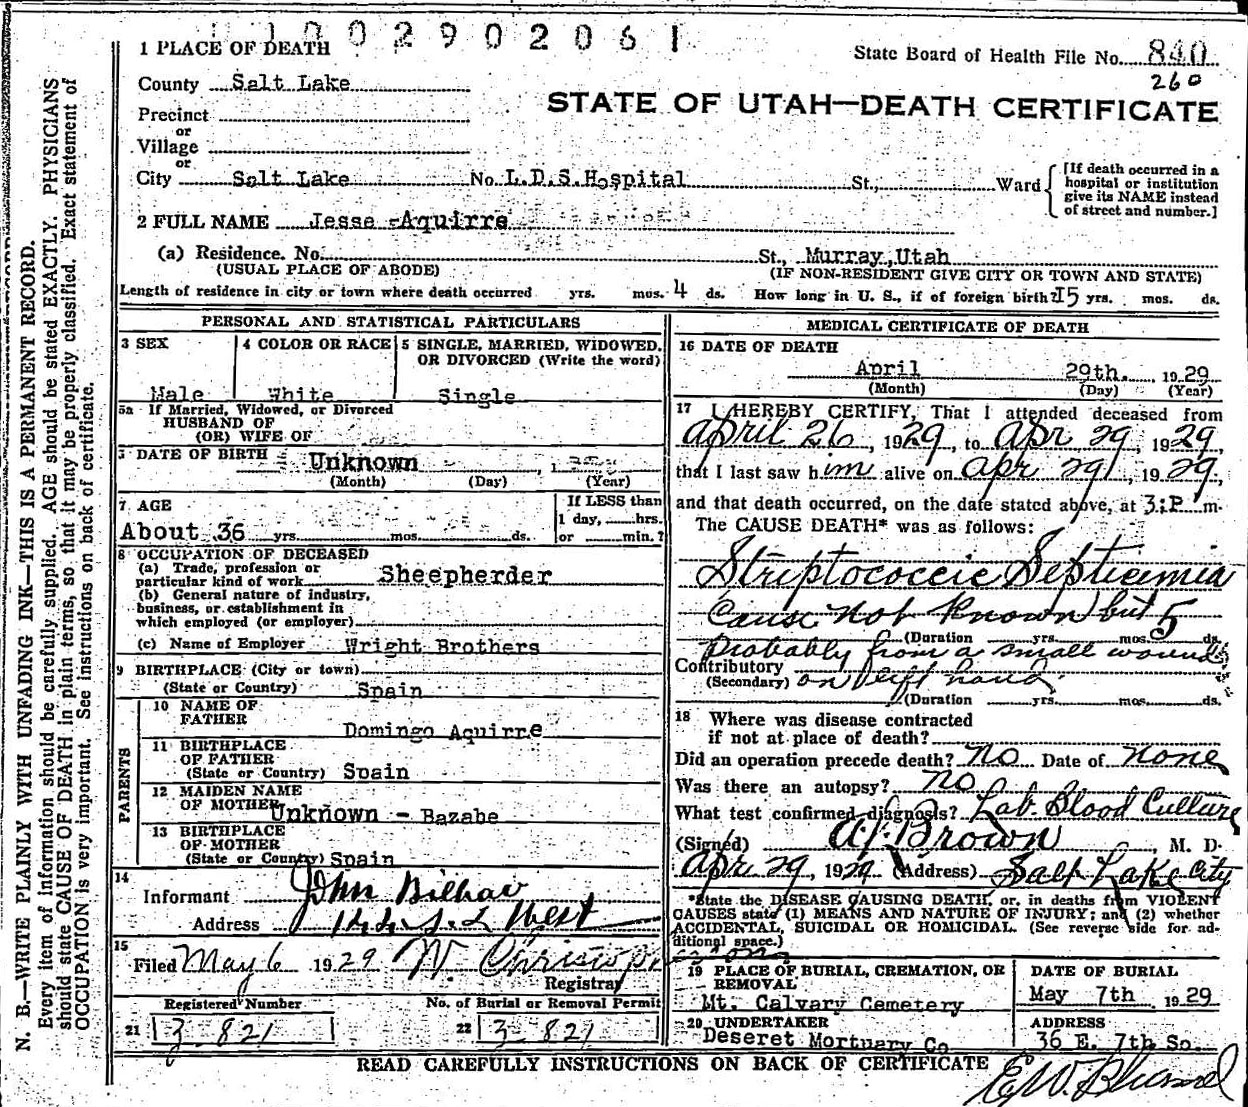 1002902061
1 PLACE OF DEATH
State Board of Health File No. 840
260
County Salt Lake
STATE OF UTAH—DEATH CERTIFICATE
Precinct
or
Village
or
City Salt Lake No. L.D.S.Hospital St., Ward
[If death occurred in a hospital or institution give its NAME instead of street and number.]
2 FULL NAME Jesse Aquirre
(a) Residence. No. St., Murray,Utah
(USUAL PLACE OF ABODE) (IF NON-RESIDENT GIVE CITY OR TOWN AND STATE)
Length of residence in city or town where death occurred yrs. mos. 4 ds. How long in U. S., if of foreign birth? 15 yrs. mos. ds.
PERSONAL AND STATISTICAL PARTICULARS
3 SEX
Male
4 COLOR OR RACE
White
5 SINGLE, MARRIED, WIDOWED, OR DIVORCED (Write the word)
Single
5a If Married, Widowed, or Divorced
HUSBAND OF
(OR) WIFE OF
DATE OF BIRTH Unknown , 1
(Month) (Day) (Year)
7 AGE
About 36 yrs. mos. ds.
If LESS than
1 day, hrs.
or min.?
8 OCCUPATION OF DECEASED
(a) Trade, profession or
particular kind of work Sheepherder
(b) General nature of industry,
business, or establishment in
which employed (or employer)
(c) Name of Employer Wright Brothers
9 BIRTHPLACE (City or town)
(State or Country) Spain
PARENTS
10 NAME OF
FATHER Domingo Aquirre
11 BIRTHPLACE
OF FATHER
(State or Country) Spain
12 MAIDEN NAME
OF MOTHER Unknown - Bazabe
13 BIRTHPLACE
OF MOTHER
(State or Country) Spain
14
Informant John Bilbao
Address
15
Filed May 6 1929 W. Christopherson
Registrar
Registered Number
21 3 821
No. of Burial or Removal Permit
22 3 821
MEDICAL CERTIFICATE OF DEATH
16 DATE OF DEATH
April 29th. 1929
(Month) (Day) (Year)
17 I HEREBY CERTIFY, That I attended deceased from
April 26, 1929, to Apr 29, 1929
that I last saw him alive on Apr 29, 1929,
and that death occurred, on the date stated above, at 3:P m.
The CAUSE DEATH* was as follows:
Streptococcic Septicemia
Cause not known but
(Duration yrs. mos. 5 ds.
Probably from a small wound
Contributory
(Secondary) on left hand
(Duration yrs. mos. ds.
18 Where was disease contracted
if not at place of death?
Did an operation precede death? No Date of None
Was there an autopsy? No
What test confirmed diagnosis? Lab. Blood Culture
(Signed) A.J. Brown, M. D.
Apr 29, 1929 (Address) Salt Lake City
*State the DISEASE CAUSING DEATH, or, in deaths from VIOLENT
CAUSES state (1) MEANS AND NATURE OF INJURY; and (2) whether
ACCIDENTAL, SUICIDAL OR HOMICIDAL. (See reverse side for ad-
ditional space.)
19 PLACE OF BURIAL, CREMATION, OR
REMOVAL
Mt. Calvary Cemetery
DATE OF BURIAL
May 7th 1929
20 UNDERTAKER
Deseret Mortuary Co
ADDRESS
36 E. 7th So.
READ CAREFULLY INSTRUCTIONS ON BACK OF CERTIFICATE
N. B.—WRITE PLAINLY WITH UNFADING INK—THIS IS A PERMANENT RECORD.
Every item of information should be carefully supplied. AGE should be stated EXACTLY. PHYSICIANS
should state CAUSE OF DEATH in plain terms, so that it may be properly classified. Exact statement of
OCCUPATION is very important. See instructions on back of certificate.